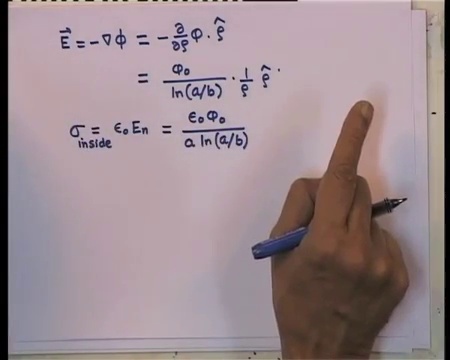 E⃗ = -∇φ = - ∂/∂ρ φ · ρ̂
= φ₀/ln(a/b) · 1/ρ ρ̂
σ inside = ε₀ Eₙ = ε₀ φ₀/a ln(a/b)